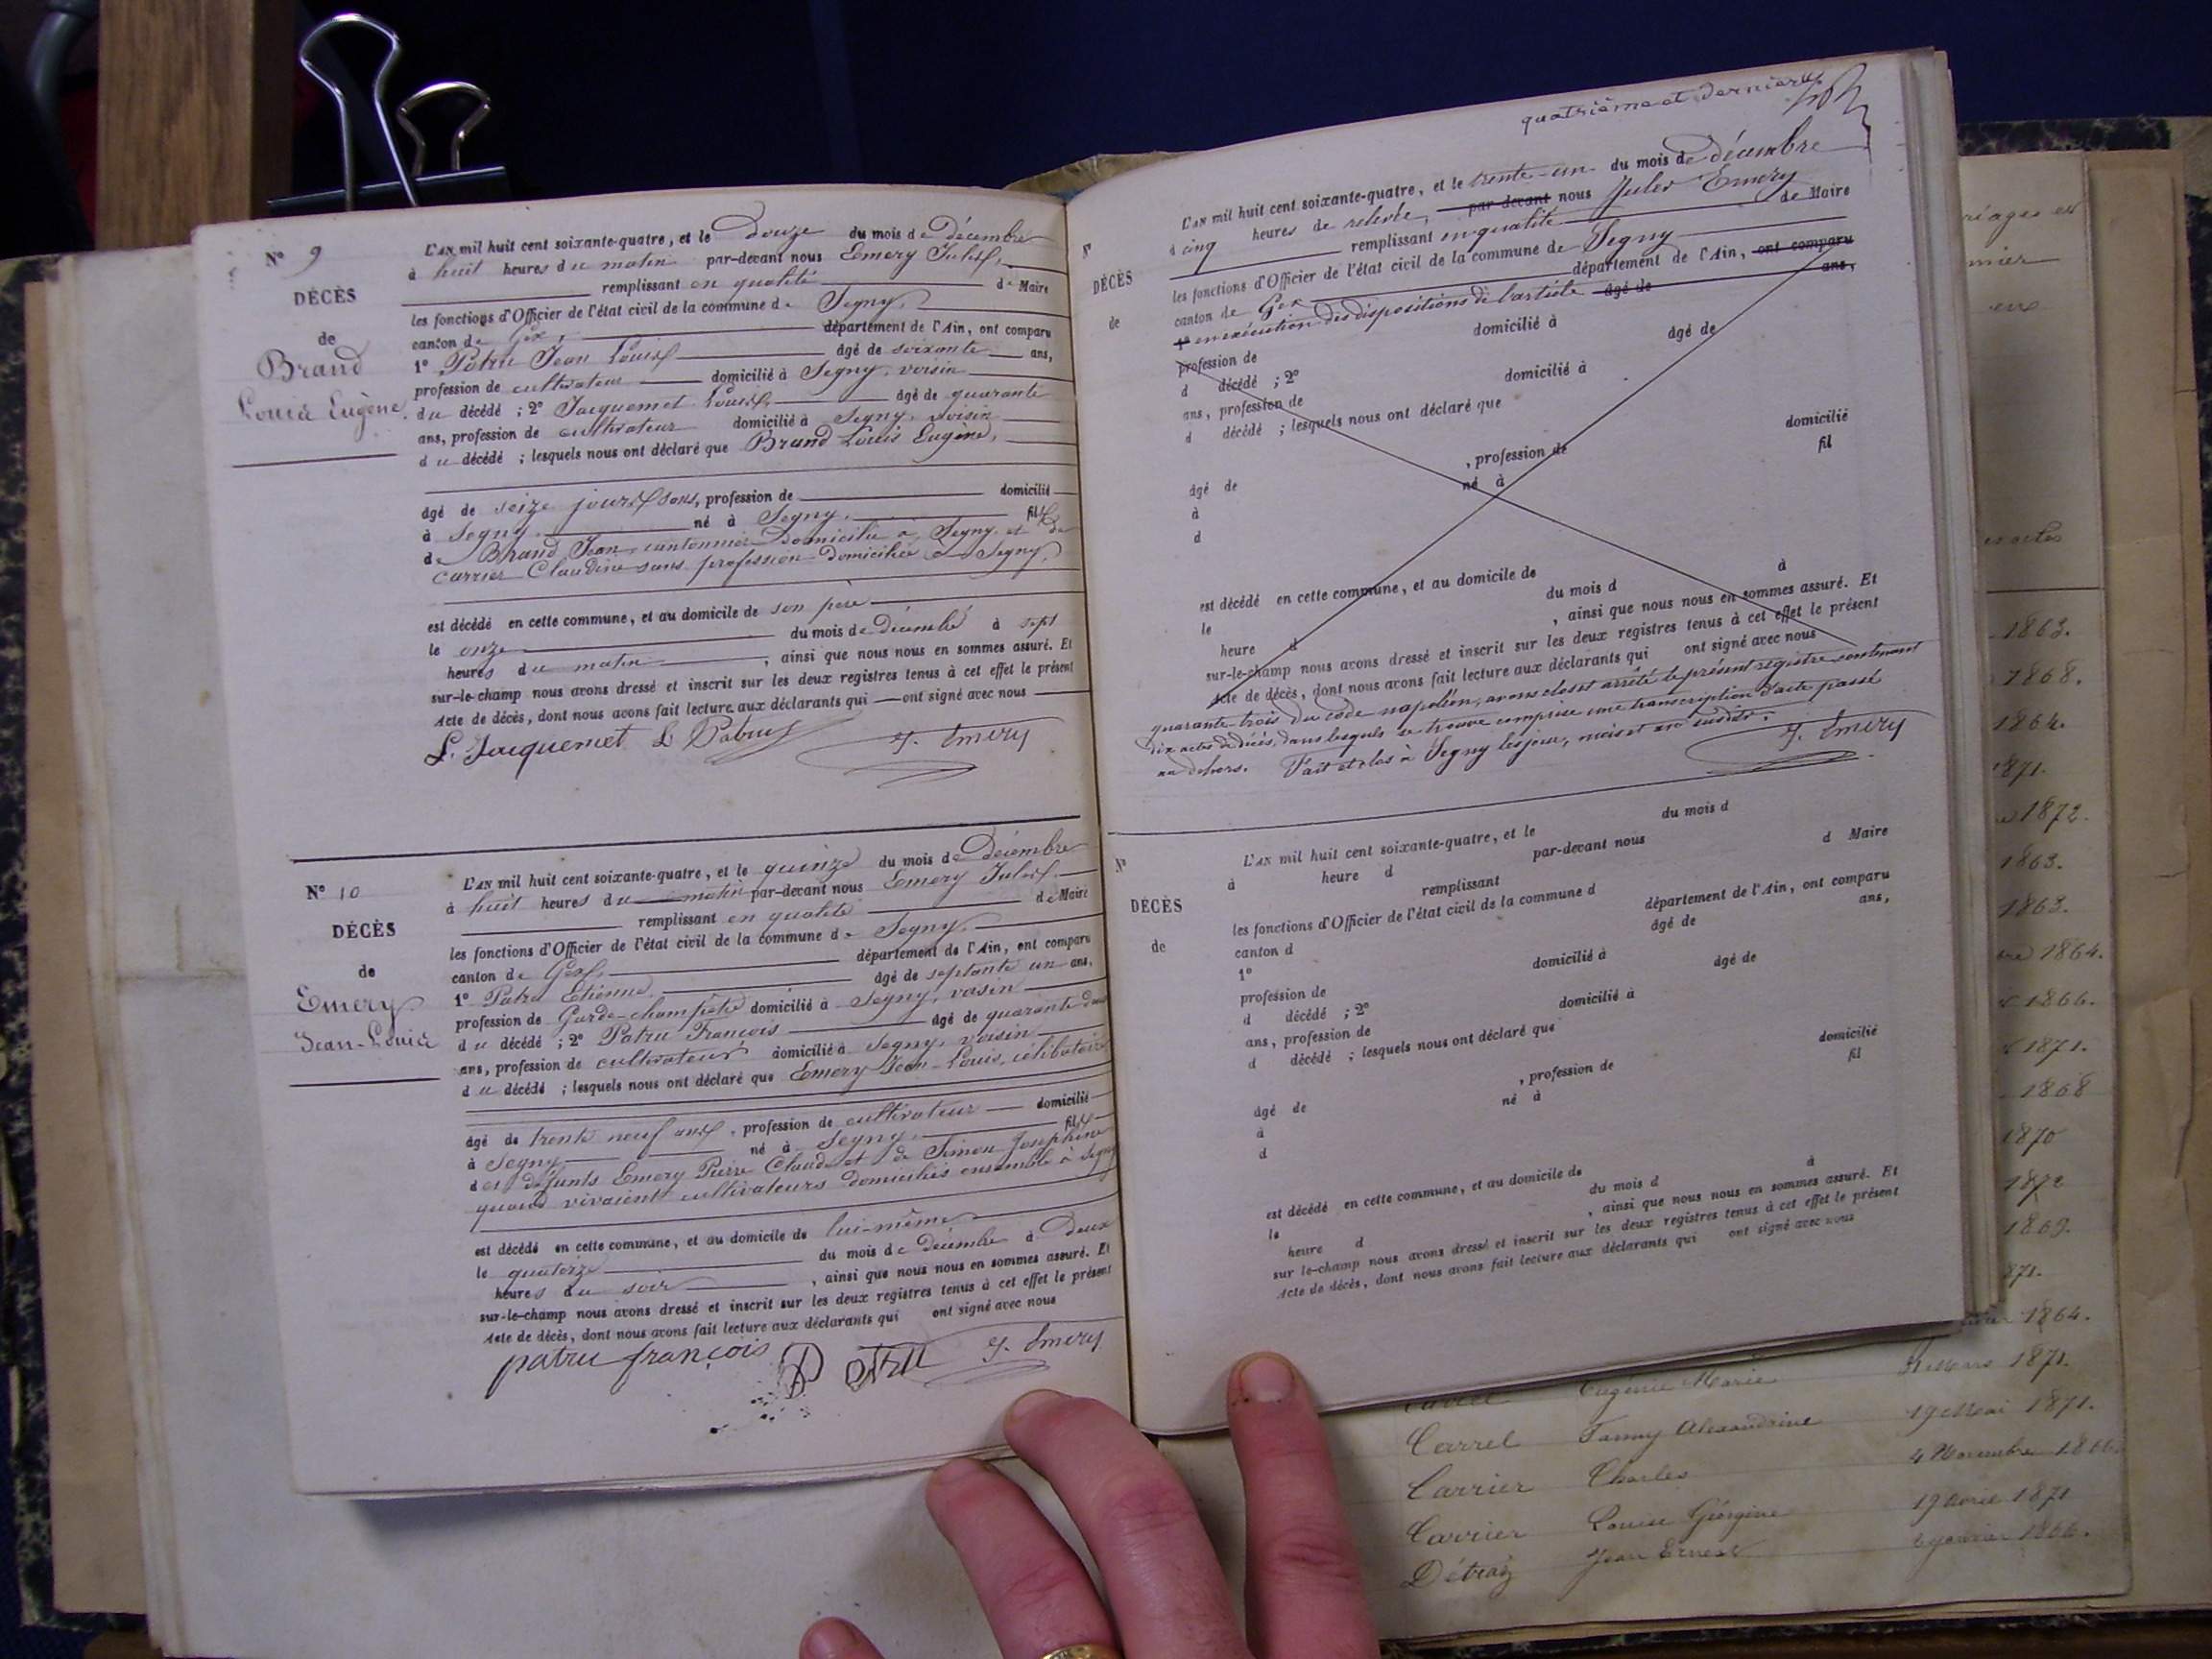 N° 9
DÉCÈS
de
Brand
Louis Eugène.
L'AN mil huit cent soixante-quatre, et le douze du mois de Décembre
à huit heures du matin par-devant nous Emery Jules,
remplissant en qualité de Maire
les fonctions d'Officier de l'état civil de la commune de Segny,
canton de Gex, département de l'Ain, ont comparu
1° Patru Jean Louis âgé de soixante ans,
profession de cultivateur domicilié à Segny, voisin
du décédé ; 2° Jacquemet Louis, âgé de quarante
ans, profession de cultivateur domicilié à Segny, voisin
du décédé ; lesquels nous ont déclaré que Brand Louis Eugène,
âgé de seize jours sans, profession de domicilié
à Segny, né à Segny, fils
de Brand Jean cantonnier domicilié à Segny, et de
Carrier Claudine sans profession domiciliée à Segny,
est décédé en cette commune, et au domicile de son père
le onze du mois de Décembre à sept
heures du matin , ainsi que nous nous en sommes assuré. Et
sur-le-champ nous avons dressé et inscrit sur les deux registres tenus à cet effet le présent
Acte de décès, dont nous avons fait lecture aux déclarants qui ont signé avec nous
L. Jacquemet L Patru J. Emery
N° 10
DÉCÈS
de
Emery
Jean-Louis
L'AN mil huit cent soixante-quatre, et le quinze du mois de Décembre
à huit heures du matin par-devant nous Emery Jules,
remplissant en qualité de Maire
les fonctions d'Officier de l'état civil de la commune de Segny,
canton de Gex, département de l'Ain, ont comparu
1° Patru Etienne, âgé de septante un ans,
profession de Garde-champêtre domicilié à Segny, voisin
du décédé ; 2° Patru François âgé de quarante deux
ans, profession de cultivateur domicilié à Segny, voisin
du décédé ; lesquels nous ont déclaré que Emery Jean-Louis, célibataire
âgé de trente neuf ans, profession de cultivateur domicilié
à Segny né à Segny, fils
des défunts Emery Pierre Claude et de Simon Josephine
quand vivaient cultivateurs domiciliés ensemble à Segny
est décédé en cette commune, et au domicile de lui-même
le quatorze du mois de Décembre à Deux
heures du soir , ainsi que nous nous en sommes assuré. Et
sur-le-champ nous avons dressé et inscrit sur les deux registres tenus à cet effet le présent
Acte de décès, dont nous avons fait lecture aux déclarants qui ont signé avec nous
patru françois Patru J. Emery
quatrième et dernière
N°
DÉCÈS
de
L'AN mil huit cent soixante-quatre, et le trente-un du mois de décembre
à cinq heures de relevée, par-devant nous Jules Emery
remplissant en qualité de Maire
les fonctions d'Officier de l'état civil de la commune de Segny
canton de Gex département de l'Ain, ont comparu
1° en exécution des dispositions de l'article âgé de ans,
profession de domicilié à
d décédé ; 2° âgé de
ans, profession de domicilié à
d décédé ; lesquels nous ont déclaré que
âgé de , profession de domicilié
à né à fil
d
est décédé en cette commune, et au domicile de
le du mois d à
heure d , ainsi que nous nous en sommes assuré. Et
sur-le-champ nous avons dressé et inscrit sur les deux registres tenus à cet effet le présent
Acte de décès, dont nous avons fait lecture aux déclarants qui ont signé avec nous
quarante trois du code napoléon, avons clos et arrêté le présent registre contenant
dix actes de décès, dans lesquels se trouve comprise une transcription d'acte passé
au dehors. Fait et clos à Segny les jour, mois et an susdits. J. Emery
N°
DÉCÈS
de
L'AN mil huit cent soixante-quatre, et le du mois d
à heure d par-devant nous
remplissant d Maire
les fonctions d'Officier de l'état civil de la commune d
canton d département de l'Ain, ont comparu
1° âgé de ans,
profession de domicilié à
d décédé ; 2° âgé de
ans, profession de domicilié à
d décédé ; lesquels nous ont déclaré que
âgé de , profession de domicilié
à né à fil
d
est décédé en cette commune, et au domicile de
le du mois d à
heure d , ainsi que nous nous en sommes assuré. Et
sur le-champ nous avons dressé et inscrit sur les deux registres tenus à cet effet le présent
Acte de décès, dont nous avons fait lecture aux déclarants qui ont signé avec nous
1863.
1868.
1864.
1871.
1872.
1863.
1863.
1864.
1866.
1871.
1868
1870
1872
1869.
871.
1864.
Eugénie Marie Mars 1871.
Carrel Fanny Alexandrine 19 Mai 1871.
Carrier Charles 4 Novembre 1866.
Carrier Louise Géorgine 19 Avril 1871
Détraz Jean Ernest janvier 1866.